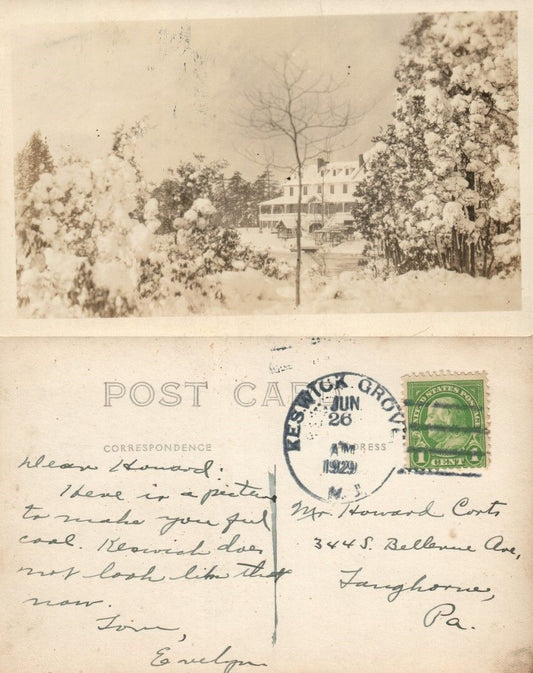 POST CARD
CORRESPONDENCE
ADDRESS
KESWICK GROVE
JUN
26
AM
1929
N. J.
UNITED STATES POSTAGE
1 CENT 1
Dear Howard:
Here is a picture
to make you feel
cool. Keswick does
not look like that
now.
Love,
Evelyn
Mr. Howard Corts
344 S. Bellevue Ave,
Langhorne,
Pa.